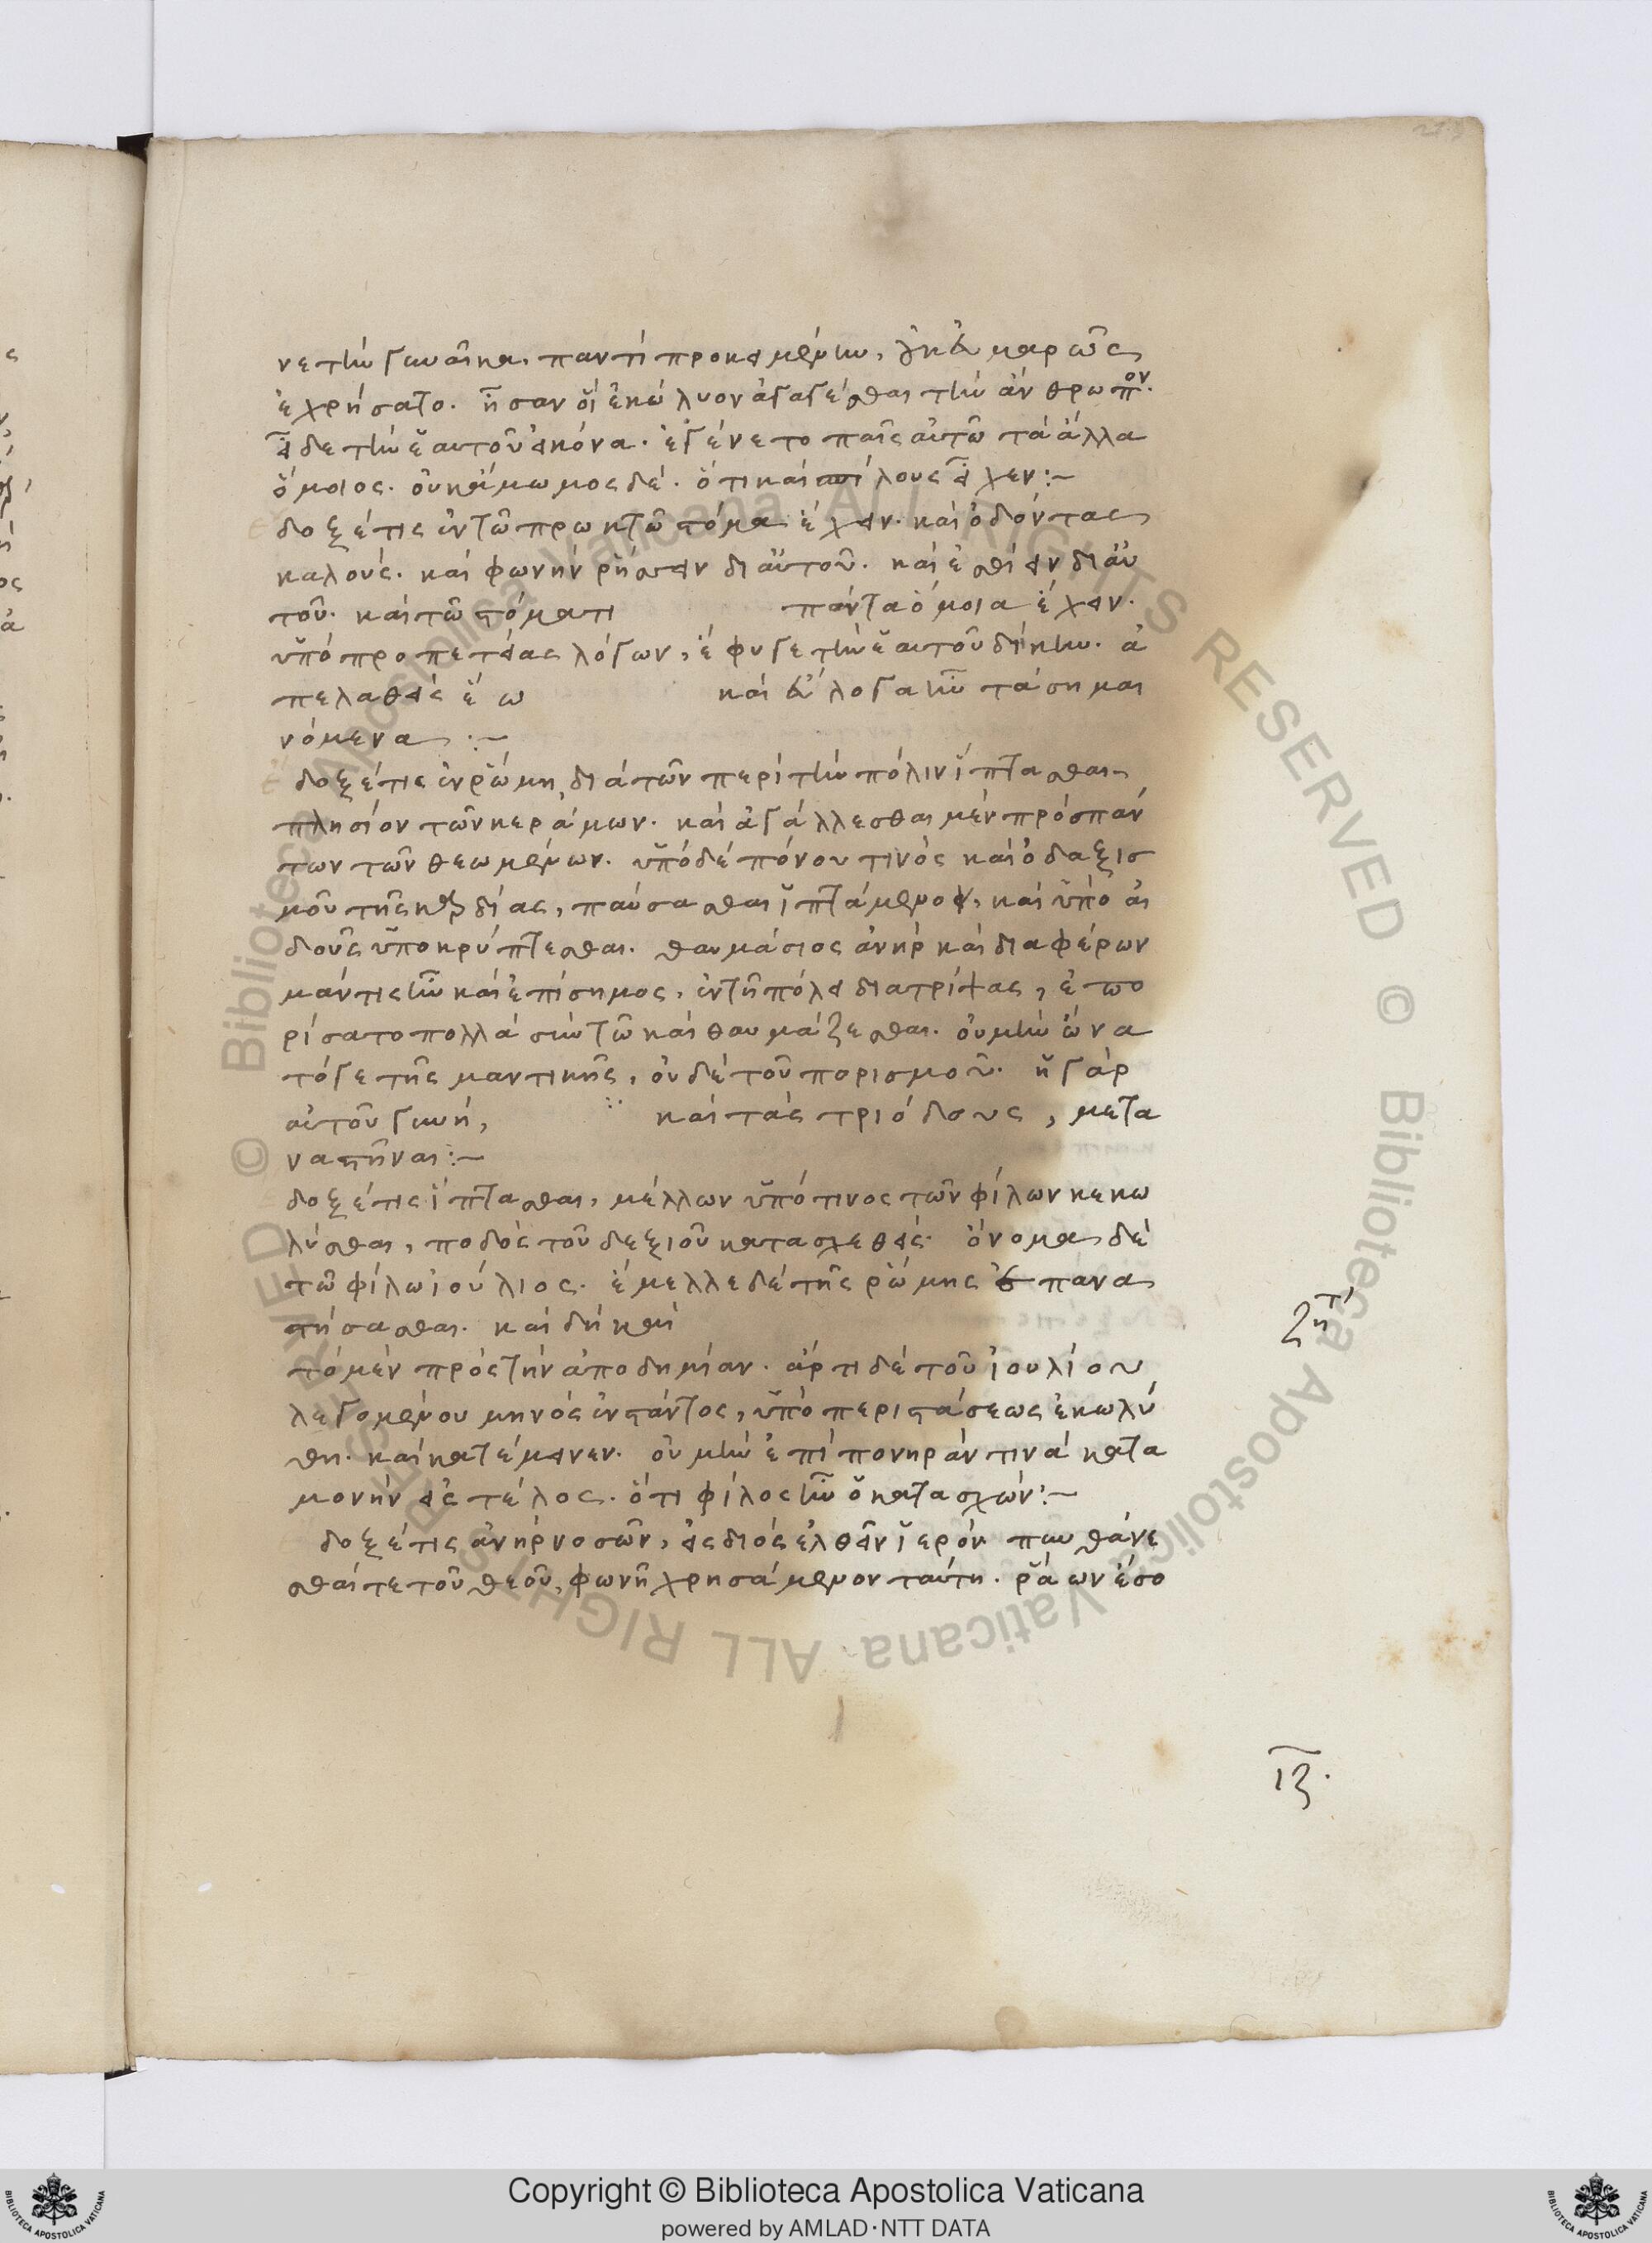 νε τὴν γυναῖκα. παντὶ προκειμένην. ἐκ μαρῶς
ἐχρήσατο. ἦσαν οἳ ἐκώλυον ἀγαγέσθαι τὴν ἄνθρωπον.
εἶδε τὴν ἑαυτοῦ εἰκόνα. ἐγένετο παῖς αὐτῶ τὰ ἄλλα
ὅμοιος. οὐκ ἄμωμος δέ. ὅτι καὶ σπίλους εἶχεν:~
δοξέ τις ἐν τῶ πρωκτῶ στόμα ἔχειν. καὶ ὀδόντας
καλούς. καὶ φωνὴν ῥήσσειν δι αὑτοῦ. καὶ ἐσθίειν δι αὑ
τοῦ. καὶ τῶ στόματι πάντα ὅμοια ἔχειν.
ὑπὸ προπετείας λόγων, ἔφυγε τὴν ἑαυτοῦ δίκην. ἀ
πελαθεὶς ἔ ω καὶ εὔλογα ἦν τὰ σημαι
νόμενα :~
δοξέ τις ἐν ῥώμη, διὰ τῶν περὶ τὴν πόλιν ἵπτασθαι
πλησίον τῶν κεράμων. καὶ ἀγάλλεσθαι μὲν πρὸς πάν
των τῶν θεωμένων. ὑπὸ δὲ πόνου τινὸς καὶ ὀδαξισ
μοῦ τῆς καρδίας, παύσασθαι ἱπτάμενον, καὶ ὑπὸ αἰ
δοῦς ὑποκρύπτεσθαι. θαυμάσιος ἀνὴρ καὶ διαφέρων
μάντις ἦν καὶ ἐπίσημος, ἐν τῆ πόλει διατρίψας, ἐπο
ρίσατο πολλὰ σὺν τῶ καὶ θαυμάζεσθαι. οὐ μὴν ὤνα
τό γε τῆς μαντικῆς, οὐδὲ τοῦ πορισμοῦ. ἡ γὰρ
αὐτοῦ γυνή, καὶ τὰς τριόδους, μετα
ναστῆναι:~
δοξέ τις ἵπτασθαι, μέλλων ὑπό τινος τῶν φίλων κεκω
λύσθαι, ποδὸς τοῦ δεξιοῦ κατασχεθείς. ὄνομα δὲ
τῶ φίλω ἰούλιος. ἔμελλε δὲ τῆς ῥώμης ἐπανα
στήσασθαι. καὶ δὴ καὶ
τὸ μὲν πρὸς τὴν ἀποδημίαν. ἄρτι δὲ τοῦ ἰουλίου
λεγομένου μηνὸς ἐνστάντος, ὑπὸ περιστάσεως ἐκωλύ
θη. καὶ κατέμεινεν. οὐ μὴν ἐπὶ πονηράν τινα κατα
μονὴν εἰς τέλος. ὅτι φίλος ἦν ὁ κατασχών:~
ζητ
δοξέ τις ἀνὴρ νοσῶν, εἰς διὸς ἐλθεῖν ἱερὸν πυνθάνε
σθαί τε τοῦ θεοῦ, φωνῆ χρησάμενον ταύτη. ῥάων ἔσο
ιζ.
Copyright © Biblioteca Apostolica Vaticana
powered by AMLAD·NTT DATA